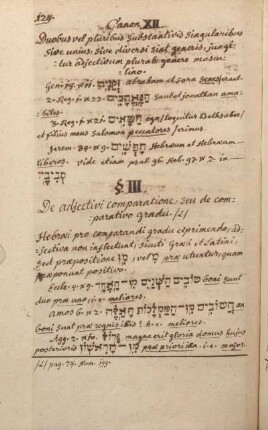 124.
Canon XII.
Duobus vel pluribus substantivis singularibus
sive unius, sive diversi sint generis, jungi-
tur adjectivum plurale genere mascu-
lino.
זְקֵנִים abraham et sara senes erant.
2. Reg. 1. v. 23. הַנֶּאֱהָבִים Saul et jonathan ama-
biles.
3. Reg. 1. v. 21. ego (loquitur Bethsabee)
et filius meus Salomon peccatores erimus.
Jerem. 34. v. 9. חָפְשִׁים Hebræum et Hebræam
liberos. vide etiam psal. 96. v. 2. in
סְבִיבָיו
§ III.
De adjectivi comparatione, seu de com-
parativo gradu. /1/
Hebræi pro comparandi gradu exprimendo, ad-
jectiva non inflectunt, sicuti Græci et Latini,
sed præpositione מִן, vel מִ præ utuntur, quam
præponunt positivo.
Eccle. 4. v. 9. טוֹבִים הַשְּׁנַיִם מִן־הָאֶחָד boni sunt
duo præ uno, i. e. meliores.
amos 6. v. 2. הֲטוֹבִים מִן־הַמַּמְלָכוֹת הָאֵלֶּה an
boni sunt præ regnis illis? h. e. meliores.
Agg. 2. v. 10. גָּדוֹל magna erit gloria domus hujus
posterioris מִן־הָרִאשׁוֹן præ priori illa. i. e. major.
/1/ pag. 74. Num. 105.